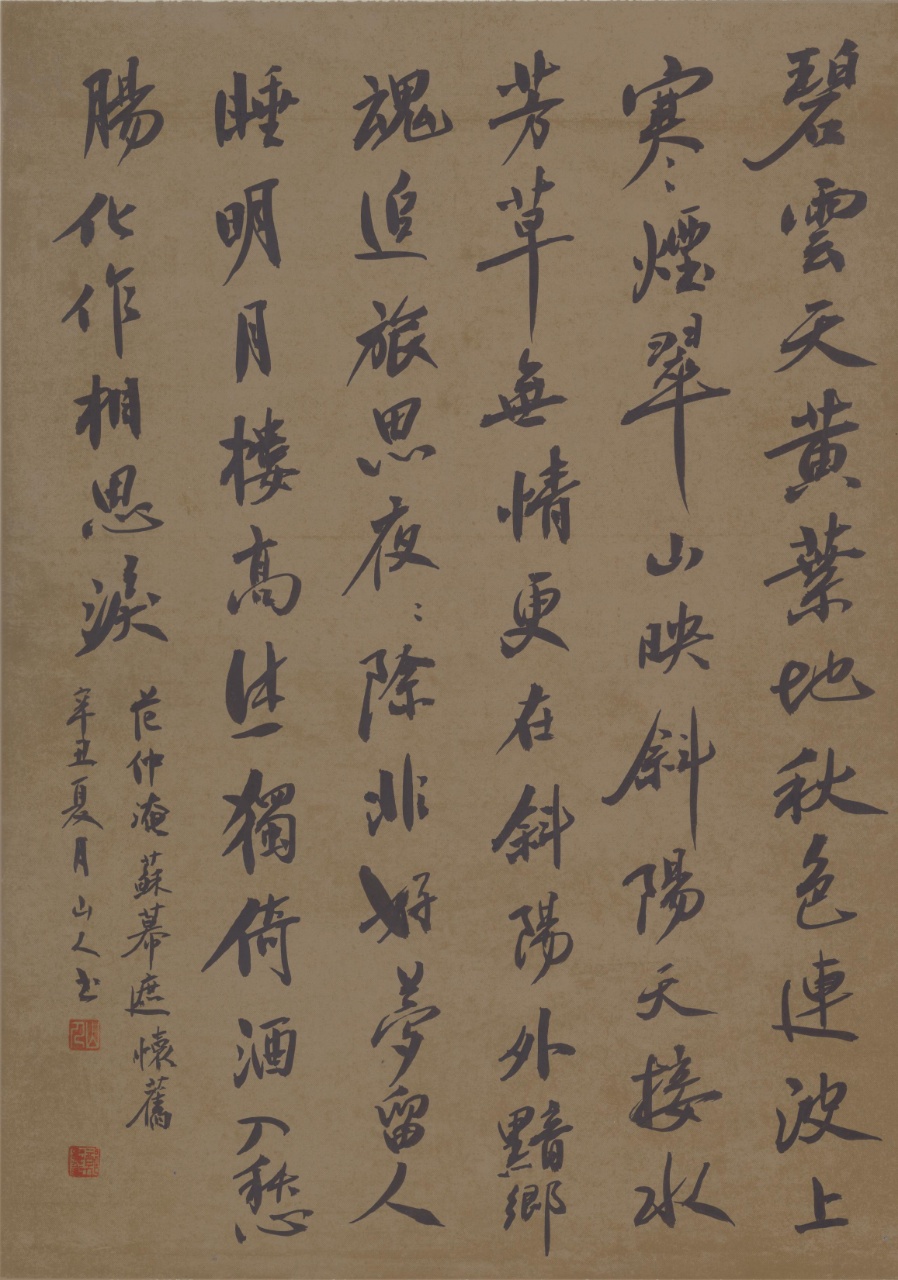 碧雲天黃葉地秋色連波上
寒〻煙翠山映斜陽天接水
芳草無情更在斜陽外黯鄉
魂追旅思夜〻除非好夢留人
睡明月樓高休獨倚酒入愁
腸化作相思淚
范仲淹蘇幕遮懷舊
辛丑夏月山人书